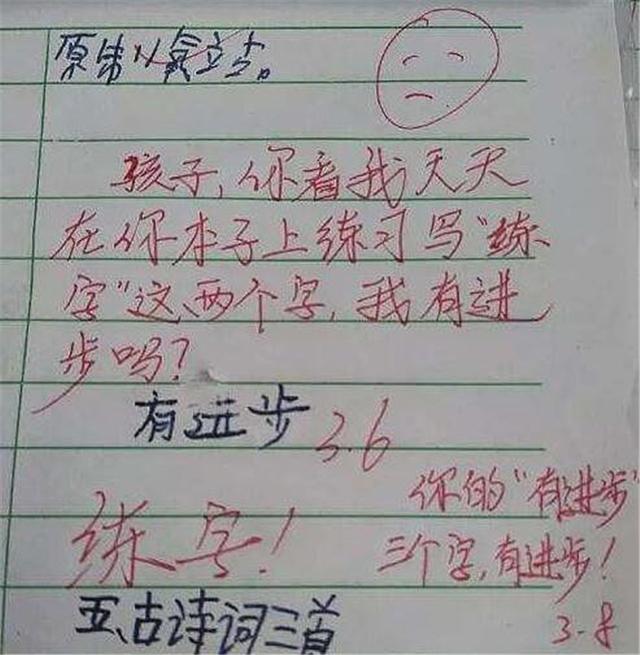 孩子,你看我天天
在你本子上练习写“练
字”这两个字,我有进
步吗?
有进步
3.6
练字!
你的“有进步”
三个字,有进步!
3.8
五、古诗词三首